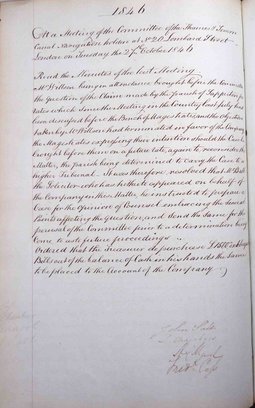 1846
At a Meeting of the Committee of the Thames & Severn
Canal Navigation holden at No 20 Lombard Street
London on Tuesday the 27th October 1846
Read the Minutes of the last Meeting
Mr William being in attendance brought before the Committee
the Question of the Claim made by the Parish of
rates which since the Meeting in the Country last July had
been discussed before the Bench of Magistrates and the Objection
taken by Mr William had terminated in favor of the Company
the Magistrates expressing their intention should the Case be
brought before them on a future rate, again to reconsider the
Matter, the Parish being determined to carry the Case to a
higher Tribunal. It was therefore resolved that Mr
the Solicitor who has hitherto appeared on behalf of
the Company in this Matter be instructed to prepare a
Case for the Opinion of Counsel embracing the several
Points affecting the Question, and send the same for the
perusal of the Committee prior to a determination being
come to as to future proceedings
Ordered that the Treasurer do purchase £1500 in Exchequer
Bills out of the balance of Cash in his hands the same
to be placed to the Account of the Company
John